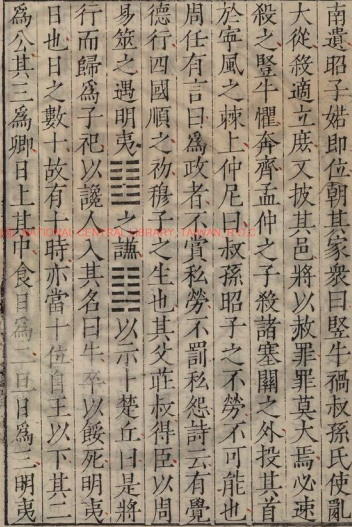 南遺昭子婼即位朝其家衆曰竪牛禍叔孫氏使亂
大從殺適立庶又披其邑將以赦罪罪莫大焉必速
殺之豎牛懼奔齊孟仲之子殺諸塞關之外投其首
於寧風之棘上仲尼曰叔孫昭子之不勞不可能也
周任有言曰爲政者不賞私勞不罰私怨詩云有覺
德行四國順之初穆子之生也其父莊叔得臣以周
易筮之遇明夷䷣之謙䷎以示卜楚丘曰是將
行而歸爲子祀以讒人入其名曰牛卒以餒死明夷
日也日之數十故有十時亦當十位自王以下其二
爲公其三爲卿日上其中食日爲二旦日爲三明夷
NATIONAL CENTRAL LIBRARY, TAIWAN, R.O.C